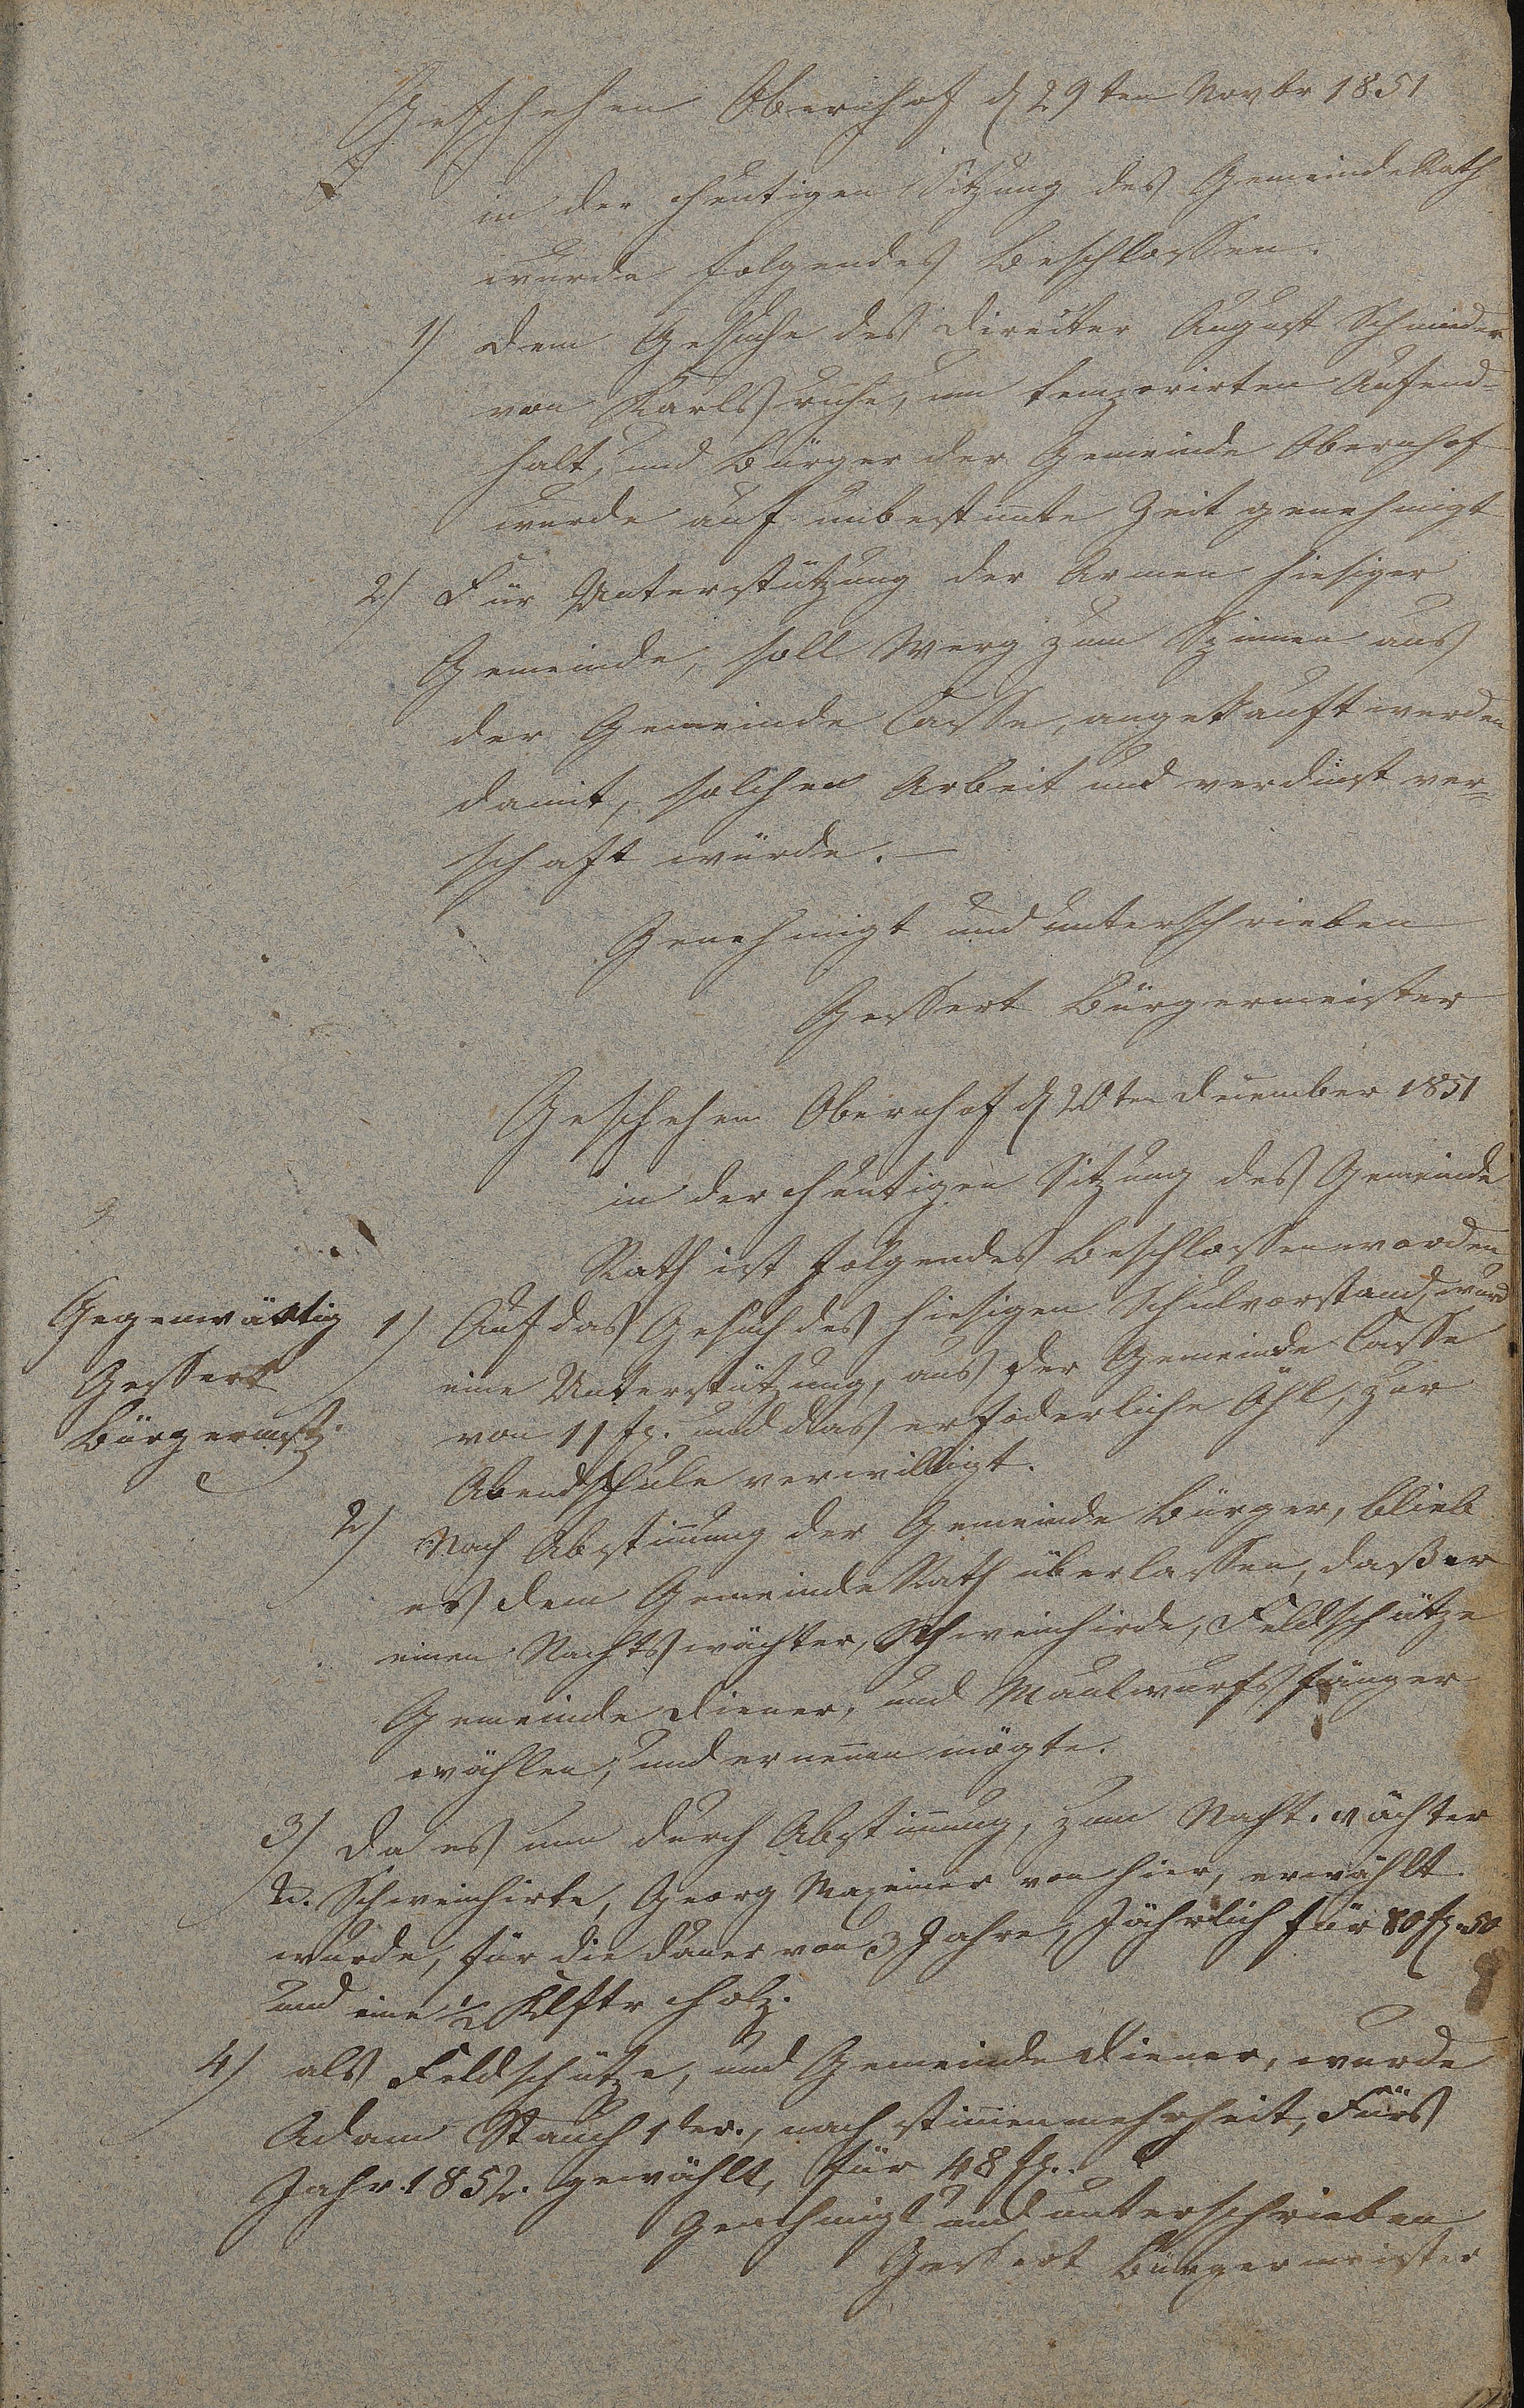 Geschehen Obernhof d 29ten Novbr 1851
in der heutigen Sitzung des Gemeinde Rath
wurde folgendes beschlossen.
1) dem Gesuche des Direcktor August Schmieder
von Karlsruhe, um temporirten Aufend-
halt, und Bürger der Gemeinde Obernhof
wurde auf unbestimte Zeit genehmigt
2) Für Unterstützung der Armen hiesiger
Gemeinde, soll Werg zum Spinnen aus
der Gemeinde Casse, angekauft werden
damit, solchen Arbeit und verdinst ver=
schaft würde. —
Genehmigt und unterschrieben
Gessert Bürgermeister
Geschehen Obernhof d 20ten december 1851
in der heutigen Sitzung des Gemeinde
Rath ist folgendes beschlossen worden
Gegenwärtig
Gessert
Bürgermstr.
1) Auf das Gesuch des hiesigen Schulvorstand, wurd
eine Unterstützung, aus der Gemeinde Casse
von 11 fl. und das erfoderliche Öhl, zur
Abendschule verwilligt.
2) Nach Abstimung der Gemeinde Bürger, blieb
es dem Gemeinde Rath überlassen, daß er
einen Nachtswächter, Schweinhirde, Feldschütze
Gemeinde diener, und Maulwurfsfänger
wählen, und ernenen mögte.
3) da es nun durch Abstimung, zum Nachtwächter
u. Schweinhirte, Georg Maxeiner von hier, erwählt
wurde, für die dauer von 3 Jahre, Jährlich für 80 fl. 50
und eine 1/2 Klftr Holz.
4) als Feldschütze, und Gemeinde diener, wurde
Adam Stauch 1ter., nach stimenmehrheit, Fürs
Jahr 1852. gewählt, für 48 fl.
Genehmigt und unterschrieben
Gessert Bürgermeister